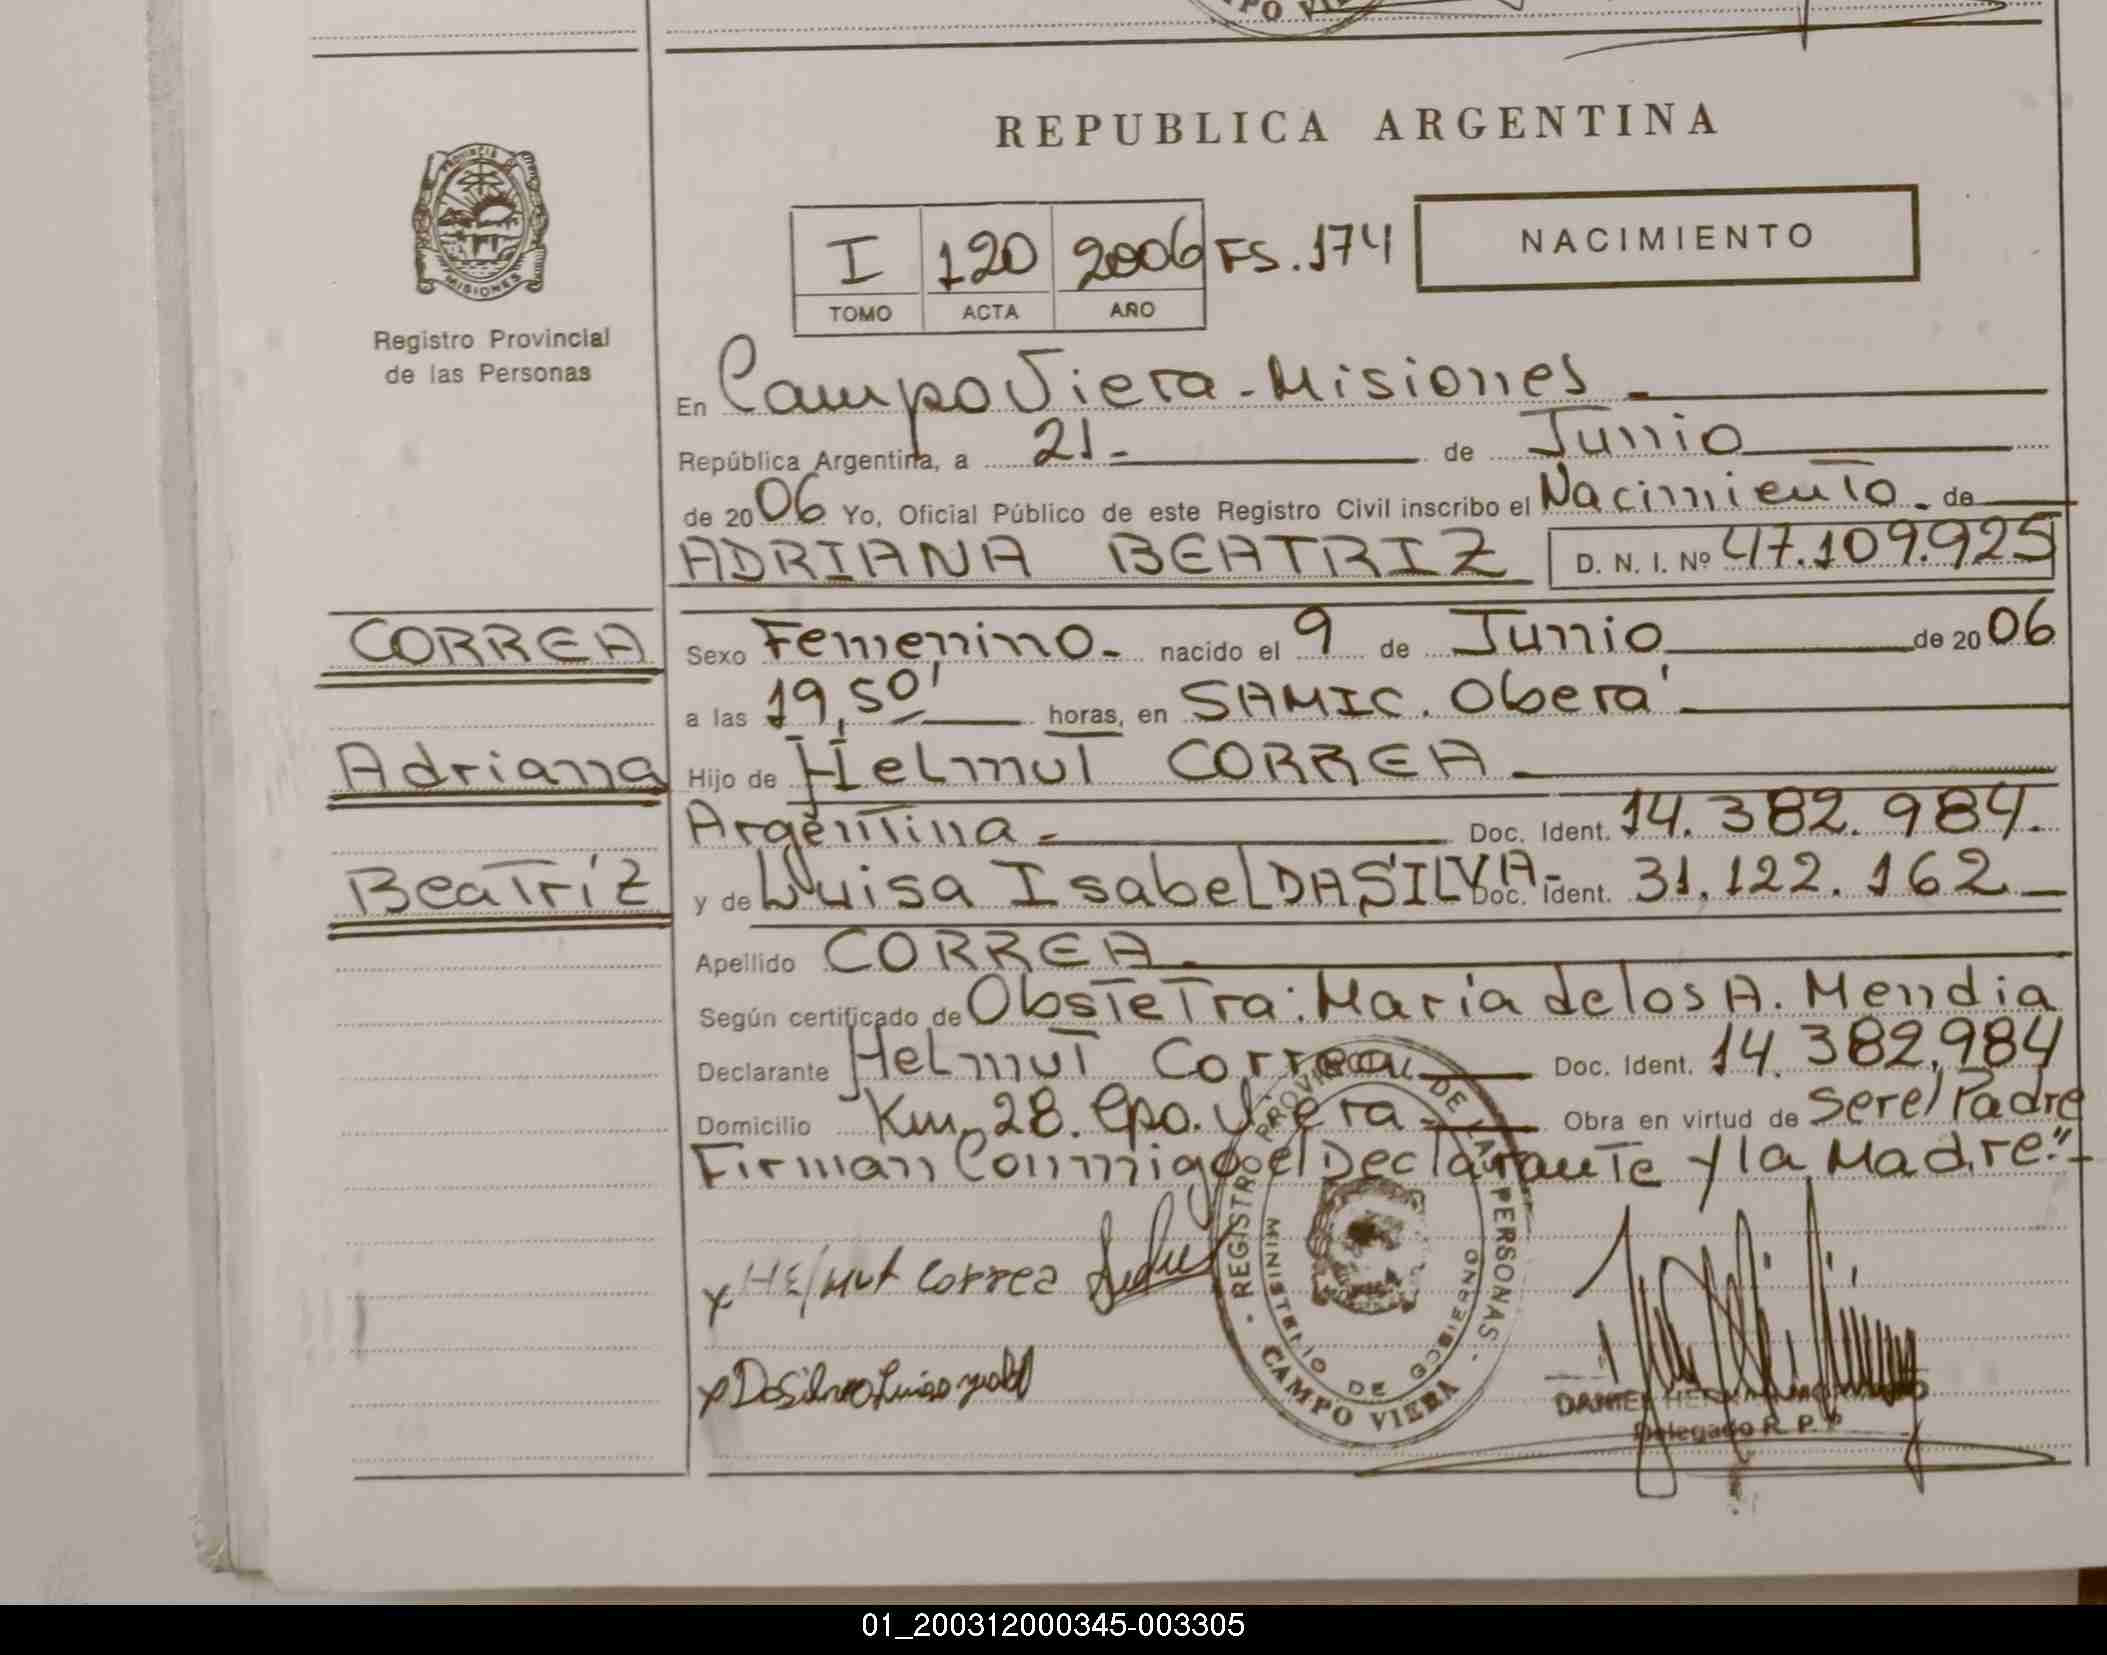 REPUBLICA ARGENTINA
PROVINCIA DE MISIONES
Registro Provincial
de las Personas
I 120 2006 FS.174
TOMO ACTA AÑO
NACIMIENTO
En Campo Viera - Misiones
República Argentina, a 21 - de Junio
de 2006 Yo, Oficial Público de este Registro Civil inscribo el Nacimiento - de
ADRIANA BEATRIZ D. N. I. Nº 47.109.925
CORREA
Adriana
Beatríz
Sexo Femenino - nacido el 9 de Junio de 2006
a las 19,50' horas, en SAMIC. Oberá
Hijo de Helmut CORREA
Argentina - Doc. Ident. 14.382.984.
y de Luisa Isabel DA SILVA - Doc. Ident. 31.122.162
Apellido CORREA
Según certificado de Obstetra: María de los A. Mendia
Declarante Helmut Correa Doc. Ident. 14.382.984
Domicilio Km. 28. Cpo. Viera - Obra en virtud de ser el Padre
Firman Conmigo el Declarante y la Madre."-
x HElmut Correa
x Da Silva Luisa
REGISTRO PROVINCIAL DE LAS PERSONAS
MINISTERIO DE GOBIERNO
CAMPO VIERA
DANIEL
Delegado R. P. P.
01_200312000345-003305